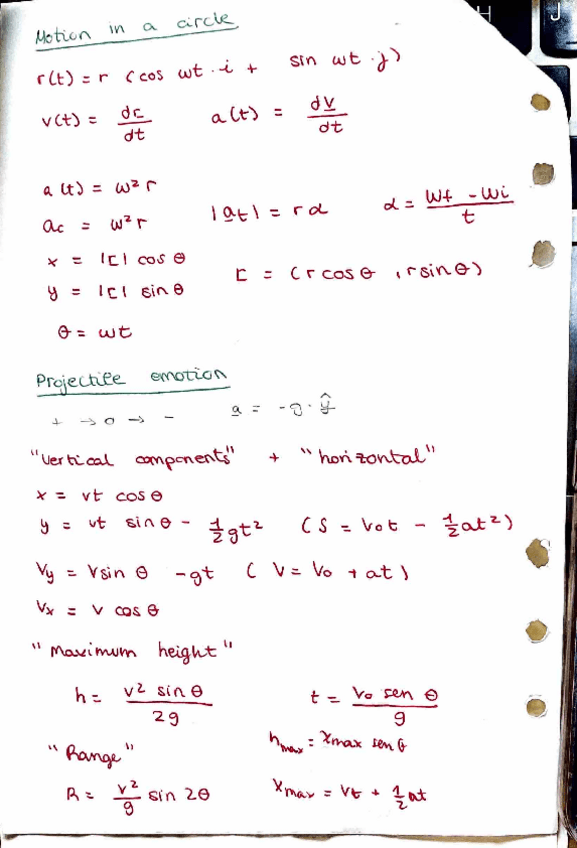 Motion in a circle
r(t) = r (cos wt · i + sin wt · j)
v(t) = dr/dt a(t) = dv/dt
a(t) = ω² r
ac = ω² r |at| = r α α = (Wf - Wi)/t
x = |r| cos θ
y = |r| sin θ r = (r cos θ, r sin θ)
θ = wt
Projectile emotion
+ → 0 → - a = -g · ŷ
"Vertical components" + "horizontal"
x = vt cos θ
y = vt sin θ - 1/2 gt² (S = Vot - 1/2 at²)
Vy = V sin θ - gt (V = Vo + at)
Vx = V cos θ
"Maximum height"
h = v² sin θ / 2g t = Vo sen θ / g
hmax = Xmax sen θ
"Range"
R = v²/g sin 2θ Xmax = Vt + 1/2 at
H
J